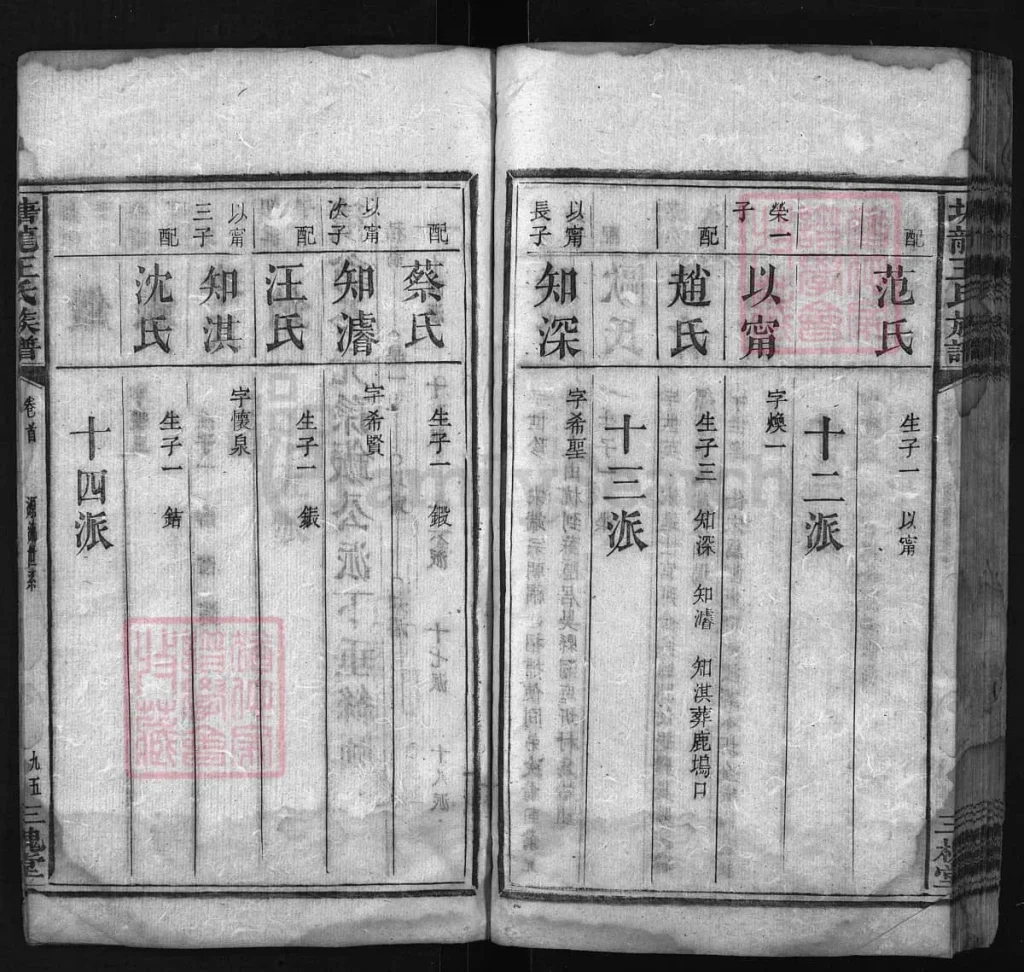 配 范氏 生子一 以甯
十二派
榮一子 以甯 字煥一
配 趙氏 生子三 知深 知濬 知淇 葬鹿塢口
十三派
以甯長子 知深 字希聖
配 蔡氏 生子一 鍛
以甯次子 知濬 字希賢
配 汪氏 生子一 鋹
以甯三子 知淇 字懷泉
配 沈氏 生子一 錯
十四派
王氏族譜 卷首 源流世系 九五 三槐堂